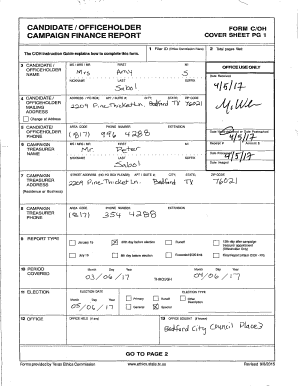 CANDIDATE / OFFICEHOLDER
CAMPAIGN FINANCE REPORT
FORM C/OH
COVER SHEET PG 1
The C/OH Instruction Guide explains how to complete this form.
1 Filer ID (Ethics Commission Filers)
2 Total pages filed:
3 CANDIDATE / OFFICEHOLDER NAME
MS / MRS / MR FIRST MI
Mrs Amy S
NICKNAME LAST SUFFIX
Sabol
OFFICE USE ONLY
Date Received
4/5/17
4 CANDIDATE / OFFICEHOLDER MAILING ADDRESS
Change of Address
ADDRESS / PO BOX; APT / SUITE #; CITY; STATE; ZIP CODE
2209 Pine Thicket Ln. Bedford TX 76021
5 CANDIDATE / OFFICEHOLDER PHONE
AREA CODE PHONE NUMBER EXTENSION
(817) 996 4288
4/5/17
Receipt # Amount $
6 CAMPAIGN TREASURER NAME
MS / MRS / MR FIRST MI
Mr. Peter
NICKNAME LAST SUFFIX
Sabol
Date Processed
4/5/17
Date Imaged
7 CAMPAIGN TREASURER ADDRESS
(Residence or Business)
STREET ADDRESS (NO PO BOX PLEASE); APT / SUITE #; CITY; STATE; ZIP CODE
2209 Pine Thicket Ln. Bedford TX 76021
8 CAMPAIGN TREASURER PHONE
AREA CODE PHONE NUMBER EXTENSION
(817) 354 4288
9 REPORT TYPE
January 15
30th day before election
Runoff
15th day after campaign treasurer appointment (Officeholder Only)
July 15
8th day before election
Exceeded $500 limit
Final Report (Attach C/OH - FR)
10 PERIOD COVERED
Month Day Year
03/06/17
THROUGH
Month Day Year
04/06/17
11 ELECTION
ELECTION DATE
Month Day Year
05/06/17
ELECTION TYPE
Primary
Runoff
Other Description
General
Special
12 OFFICE
OFFICE HELD (if any)
13 OFFICE SOUGHT (if known)
Bedford City Council Place 3
GO TO PAGE 2
Forms provided by Texas Ethics Commission
www.ethics.state.tx.us